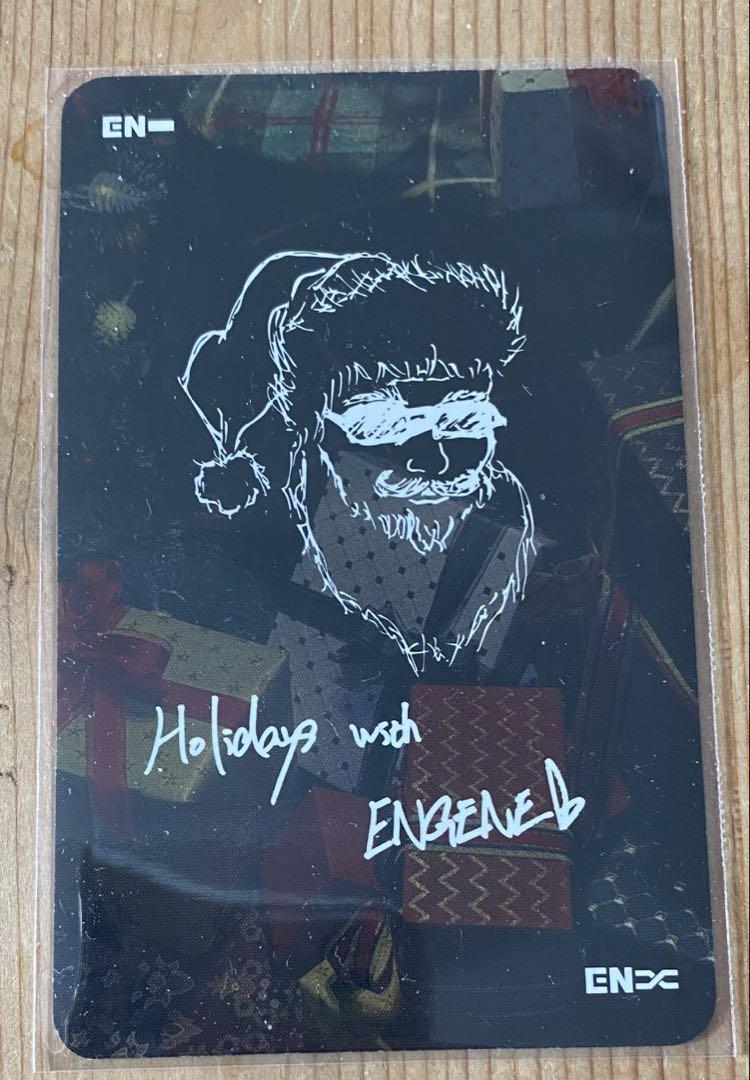 EN–
Holidays with
ENGENE♭
EN‑X